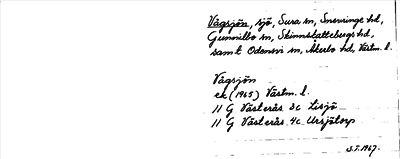 Vågsjön, sjö, Sura sn, Snevringe hd,
Gunnilbo sn, Skinnskattebergs hd,
samt Odensvi sn, Åkerbo hd, Västm. l.
Vågsjön
ek (1965) Västm. l.
11 G Västerås 3c Lisjö
11 G Västerås 4c Ursjötorp
S.T. 1967.